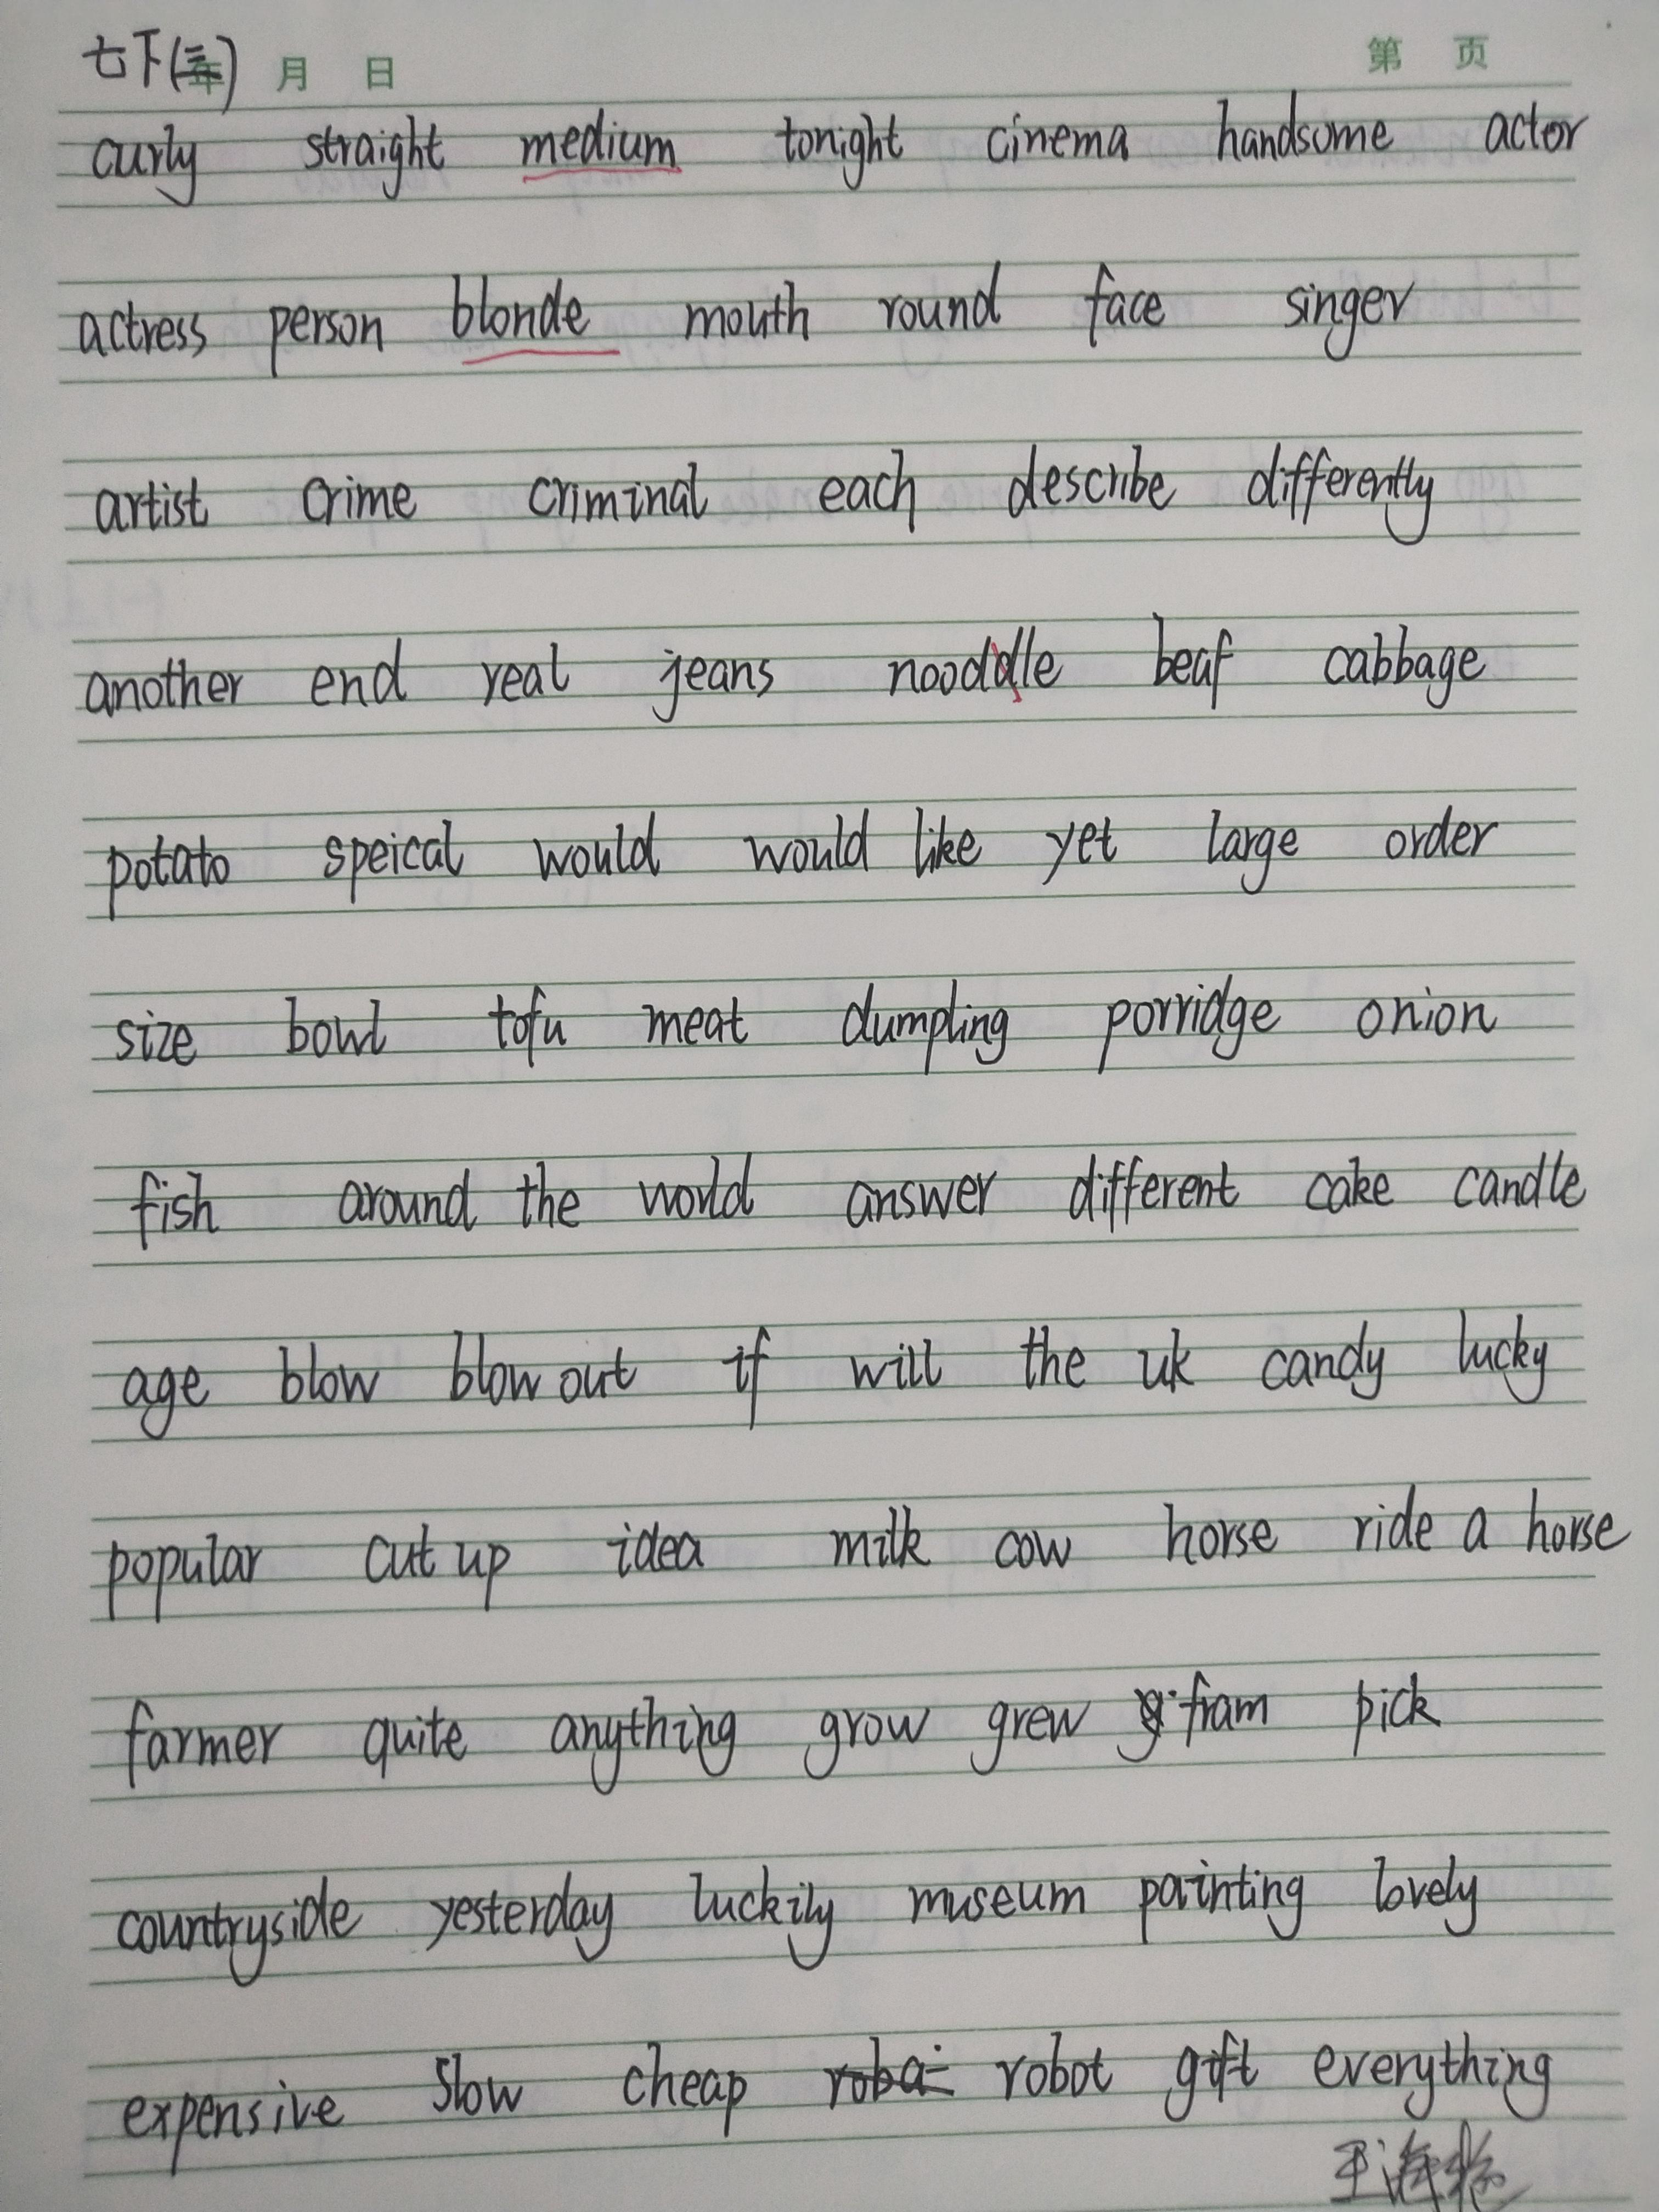 七下(三) 年 月 日 第 页
curly straight medium tonight cinema handsome actor
actress person blonde mouth round face singer
artist crime criminal each describe differently
another end real jeans nooddle beaf cabbage
potato speical would would like yet large order
size bowl tofu meat dumpling porridge onion
fish around the world answer different cake candle
age blow blow out if will the uk candy lucky
popular cut up idea milk cow horse ride a horse
farmer quite anything grow grew fram pick
countryside yesterday luckily museum painting lovely
expensive slow cheap robot gift everything